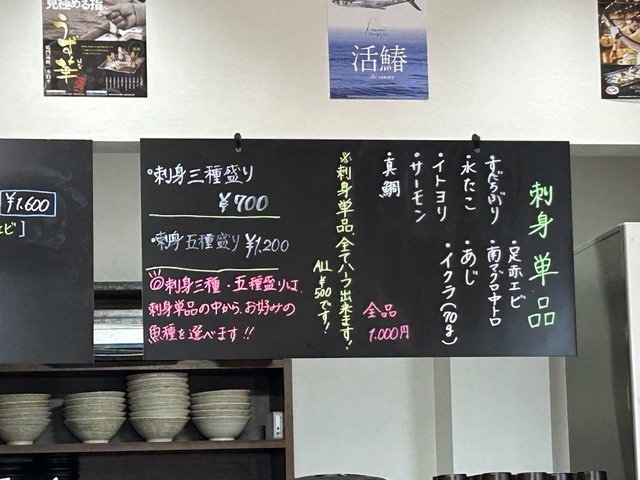 見極める指
うず華
活鰺
¥1.600
ビ]
刺身単品
すだちぶり
・水たこ
・イトヨリ
・サーモン
・真鯛
・足赤エビ
・南マグロ中トロ
・あじ
・イクラ(70g)
全品
1.000円
※刺身単品、全てハーフ出来ます!
ALL ¥500です!
・刺身三種盛り
¥700
・刺身五種盛り ¥1,200
◎刺身三種・五種盛りは、
刺身単品の中から、お好みの
魚種を選べます!!